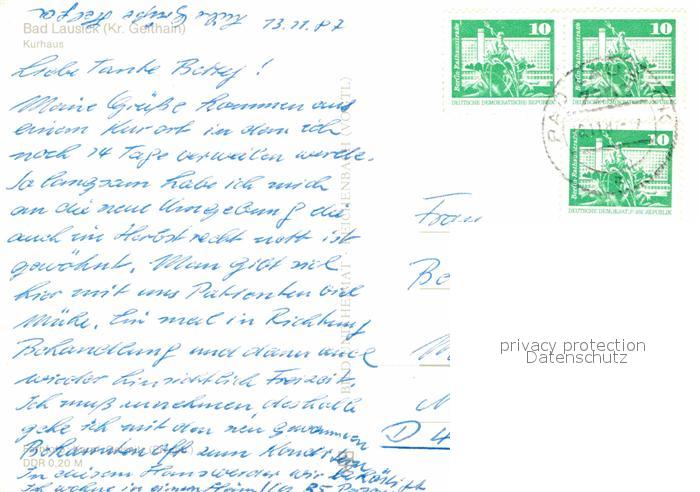 Viele Grüße Helga
13.11.87
Bad Lausick (Kr. Geithain)
Kurhaus
Liebe Tante Betty!
Meine Grüße kommen aus
einem Kurort in dem ich
noch 14 Tage verweilen werde.
So langsam habe ich mich
an die neue Umgebung die
auch im Herbst recht nett ist
gewöhnt. Man gibt sich
hier mit uns Patienten viel
Mühe. Einmal in Richtung
Behandlung und dann auch
wieder hinsichtlich Freizeit.
Ich muß zunehmen, deshalb
gehe ich mit den neu gewonnenen
Bekannten oft zum
DDR 0,20 M
In diesem Haus werden wir
Ich wohne in einem
BILD UND HEIMAT REICHENBACH (VOGTL)
10
Berlin, Rathausstraße
DEUTSCHE DEMOKRATISCHE REPUBLIK
10
Berlin, Rathausstraße
DEUTSCHE DEMOKRATISCHE REPUBLIK
10
Berlin, Rathausstraße
DEUTSCHE DEMOKRATISCHE REPUBLIK
BAD
Frau
Be
D 4
privacy protection
Datenschutz